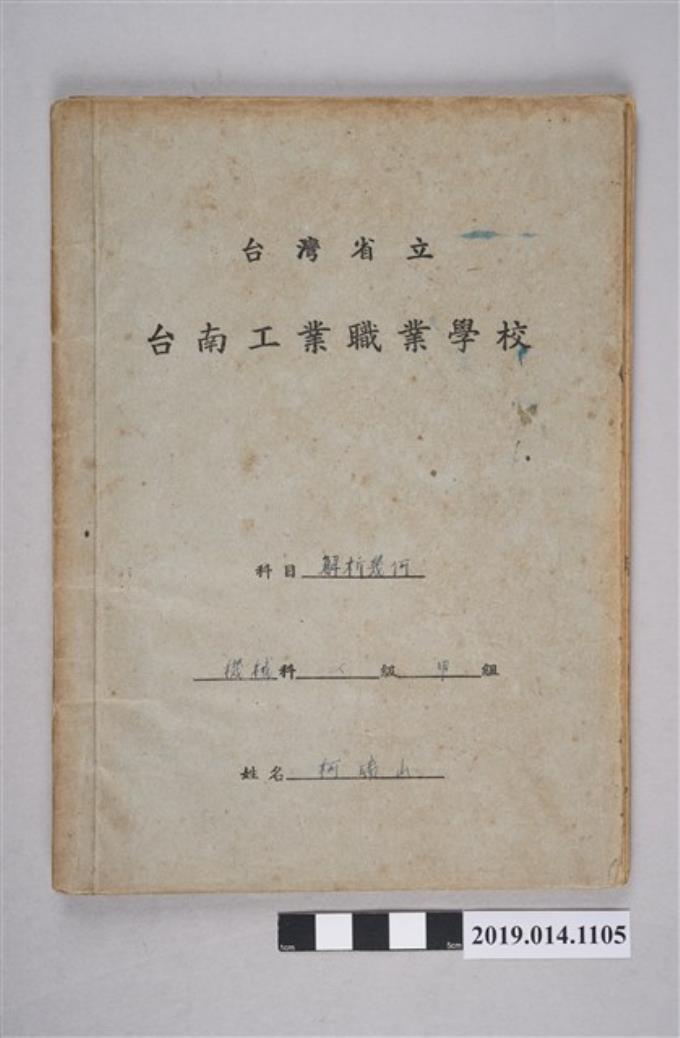 台灣省立
台南工業職業學校
科目 解析幾何
機械科 級 甲 組
姓名 柯 山
1cm 5cm
2019.014.1105